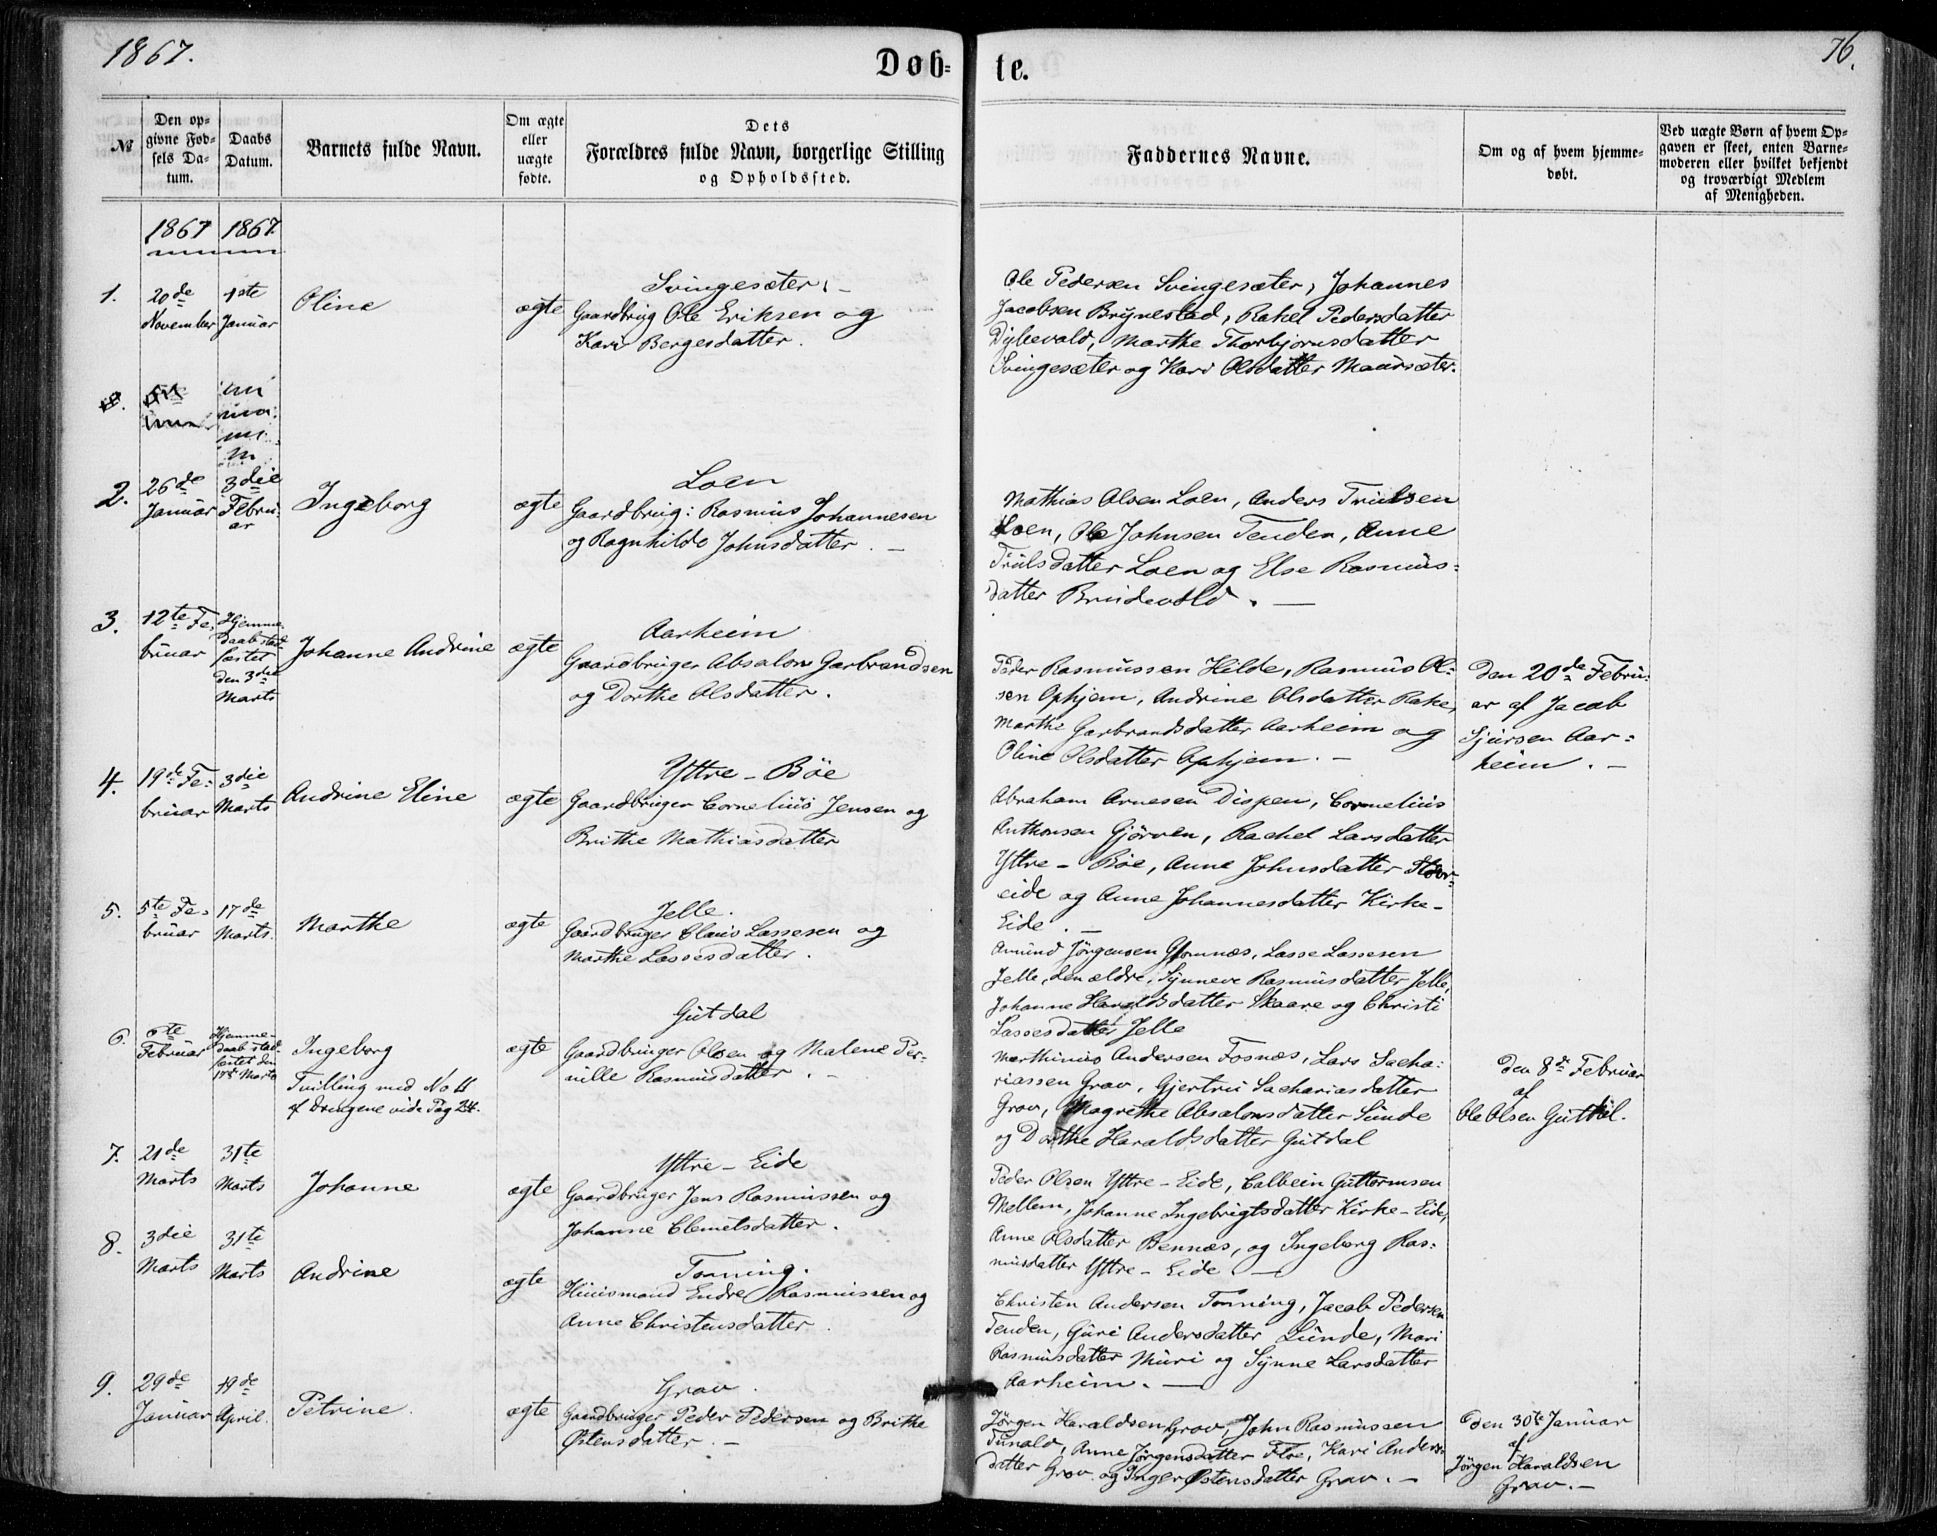 1867.
Døb-
te.
76.
№
Den op-
givne Fød-
sels Da-
tum.
Daabs
Datum.
Barnets fulde Navn.
Om ægte
eller
uægte
fødte.
Dets
Forældres fulde Navn, borgerlige Stilling
og Opholdssted.
Faddernes Navne.
Om og af hvem hjemme-
døbt.
Ved uægte Børn af hvem Op-
gaven er skeet, enten Barne-
moderen eller hvilket bekjendt
og troværdigt Medlem
af Menigheden.
1867 1867.
1.
20de
November
1ste
Januar
Oline
ægte
Svingesæter.
Gaardbrug Ole Eriksen og
Kari Bergesdatter.
Ole Pedersen Svingesæter, Johannes
Jacobsen Brynestad, Rakel Pedersdatter
Dybevald, Marthe Thorbjornsdatter
Svingesæter og Kari Olsdatter Maursæter.
2.
26de
Januar
3die
Febru-
ar
Ingeborg
ægte
Loen
Gaardbrug: Rasmus Johannesen
og Ragnhilde Johnsdatter. —
Mathias Olsen Loen, Anders Trulsen
Loen, Ole Johnsen Tenden, Anne
Trulsdatter Loen og Else Rasmus-
datter Brudevold. —
3.
12te Fe-
bruar
Hjemme-
daab stad-
fæstet
den 3die
Marts
Johanne Andrine
ægte
Aarheim
Gaardbruger Absalon Garbrandsen
og Dorthe Olsdatter.
Peder Rasmussen Hilde, Rasmus Ol-
sen Ophjem, Andrine Olsdatter Rake,
Marthe Garbrandsdatter Aarheim og
Oline Olsdatter Ophjem. —
Den 20de Febru-
ar af Jacob
Sjursen Aar-
heim. —
4.
19de Fe-
bruar
3die
Marts
Andrine Eline
ægte
Yttre - Böe
Gaardbruger Cornelius Jensen og
Brithe Mathiasdatter
Abraham Arnesen Dispen, Cornelius
Anthonsen Gjörven, Rachel Larsdatter
Yttre - Böe, Anne Johnsdatter Stor-
eide og Anne Johannesdatter Kirke-
Eide. —
5.
5te Fe-
bruar
17de
Marts.
Marthe
ægte
Jelle.
Gaardbruger Claus Lassesen og
Marthe Lassesdatter.
Amund Jörgensen Glomnæs, Lasse Lassesen
Jelle, den ældre, Synneve Rasmusdatter Jelle,
Johanne Haraldsdatter Skaare og Christi
Lassesdatter Jelle
6.
6te
Februar
Hjemme-
daab stad-
fæstet den
17de Marts
Ingeborg
Tvilling med No 11
af Drengene vide Pag 24.
ægte
Gutdal
Gaardbruger Olsen og Malene Per-
nille Rasmusdatter. —
Marthinus Andersen Fosnæs, Lars Sacha-
riassen Grav, Gjertru Sachariasdatter
Grav, Magrethe Absalonsdatter Sunde
og Dorthe Haraldsdatter Gutdal
Den 8de Februar
af
Ole Olsen Gutdal.
7.
21de
Marts
31te
Marts
Johanne
ægte
Yttre - Eide
Gaardbruger Jens Rasmussen og
Johanne Clemetsdatter.
Peder Olsen Yttre - Eide, Calbein Guttormsen
Mellem, Johanne Ingebrigtsdatter Kirke - Eide,
Anne Olsdatter Bennæs, og Ingeborg Ras-
musdatter Yttre - Eide —
8.
3die
Marts
31te
Marts
Andrine
ægte
Tonning.
Huusmand Endre Rasmussen og
Anne Christensdatter.
Christen Andersen Tonning, Jacob Pedersen
Tenden, Guri Andersdatter Lunde, Mari
Rasmusdatter Muri og Synne Larsdatter
Aarheim. —
9.
29de
Januar
19de
April.
Petrine.
ægte
Grav.
Gaardbruger Peder Pedersen og Brithe
Östensdatter. —
Jörgen Haraldsen Grav, John Rasmussen
Tunold, Anne Jörgensdatter Floe, Kari Anders-
datter Grav og Inger Östensdatter Grav. —
den 30te Januar
af
Jörgen Haraldsen
Grav. —